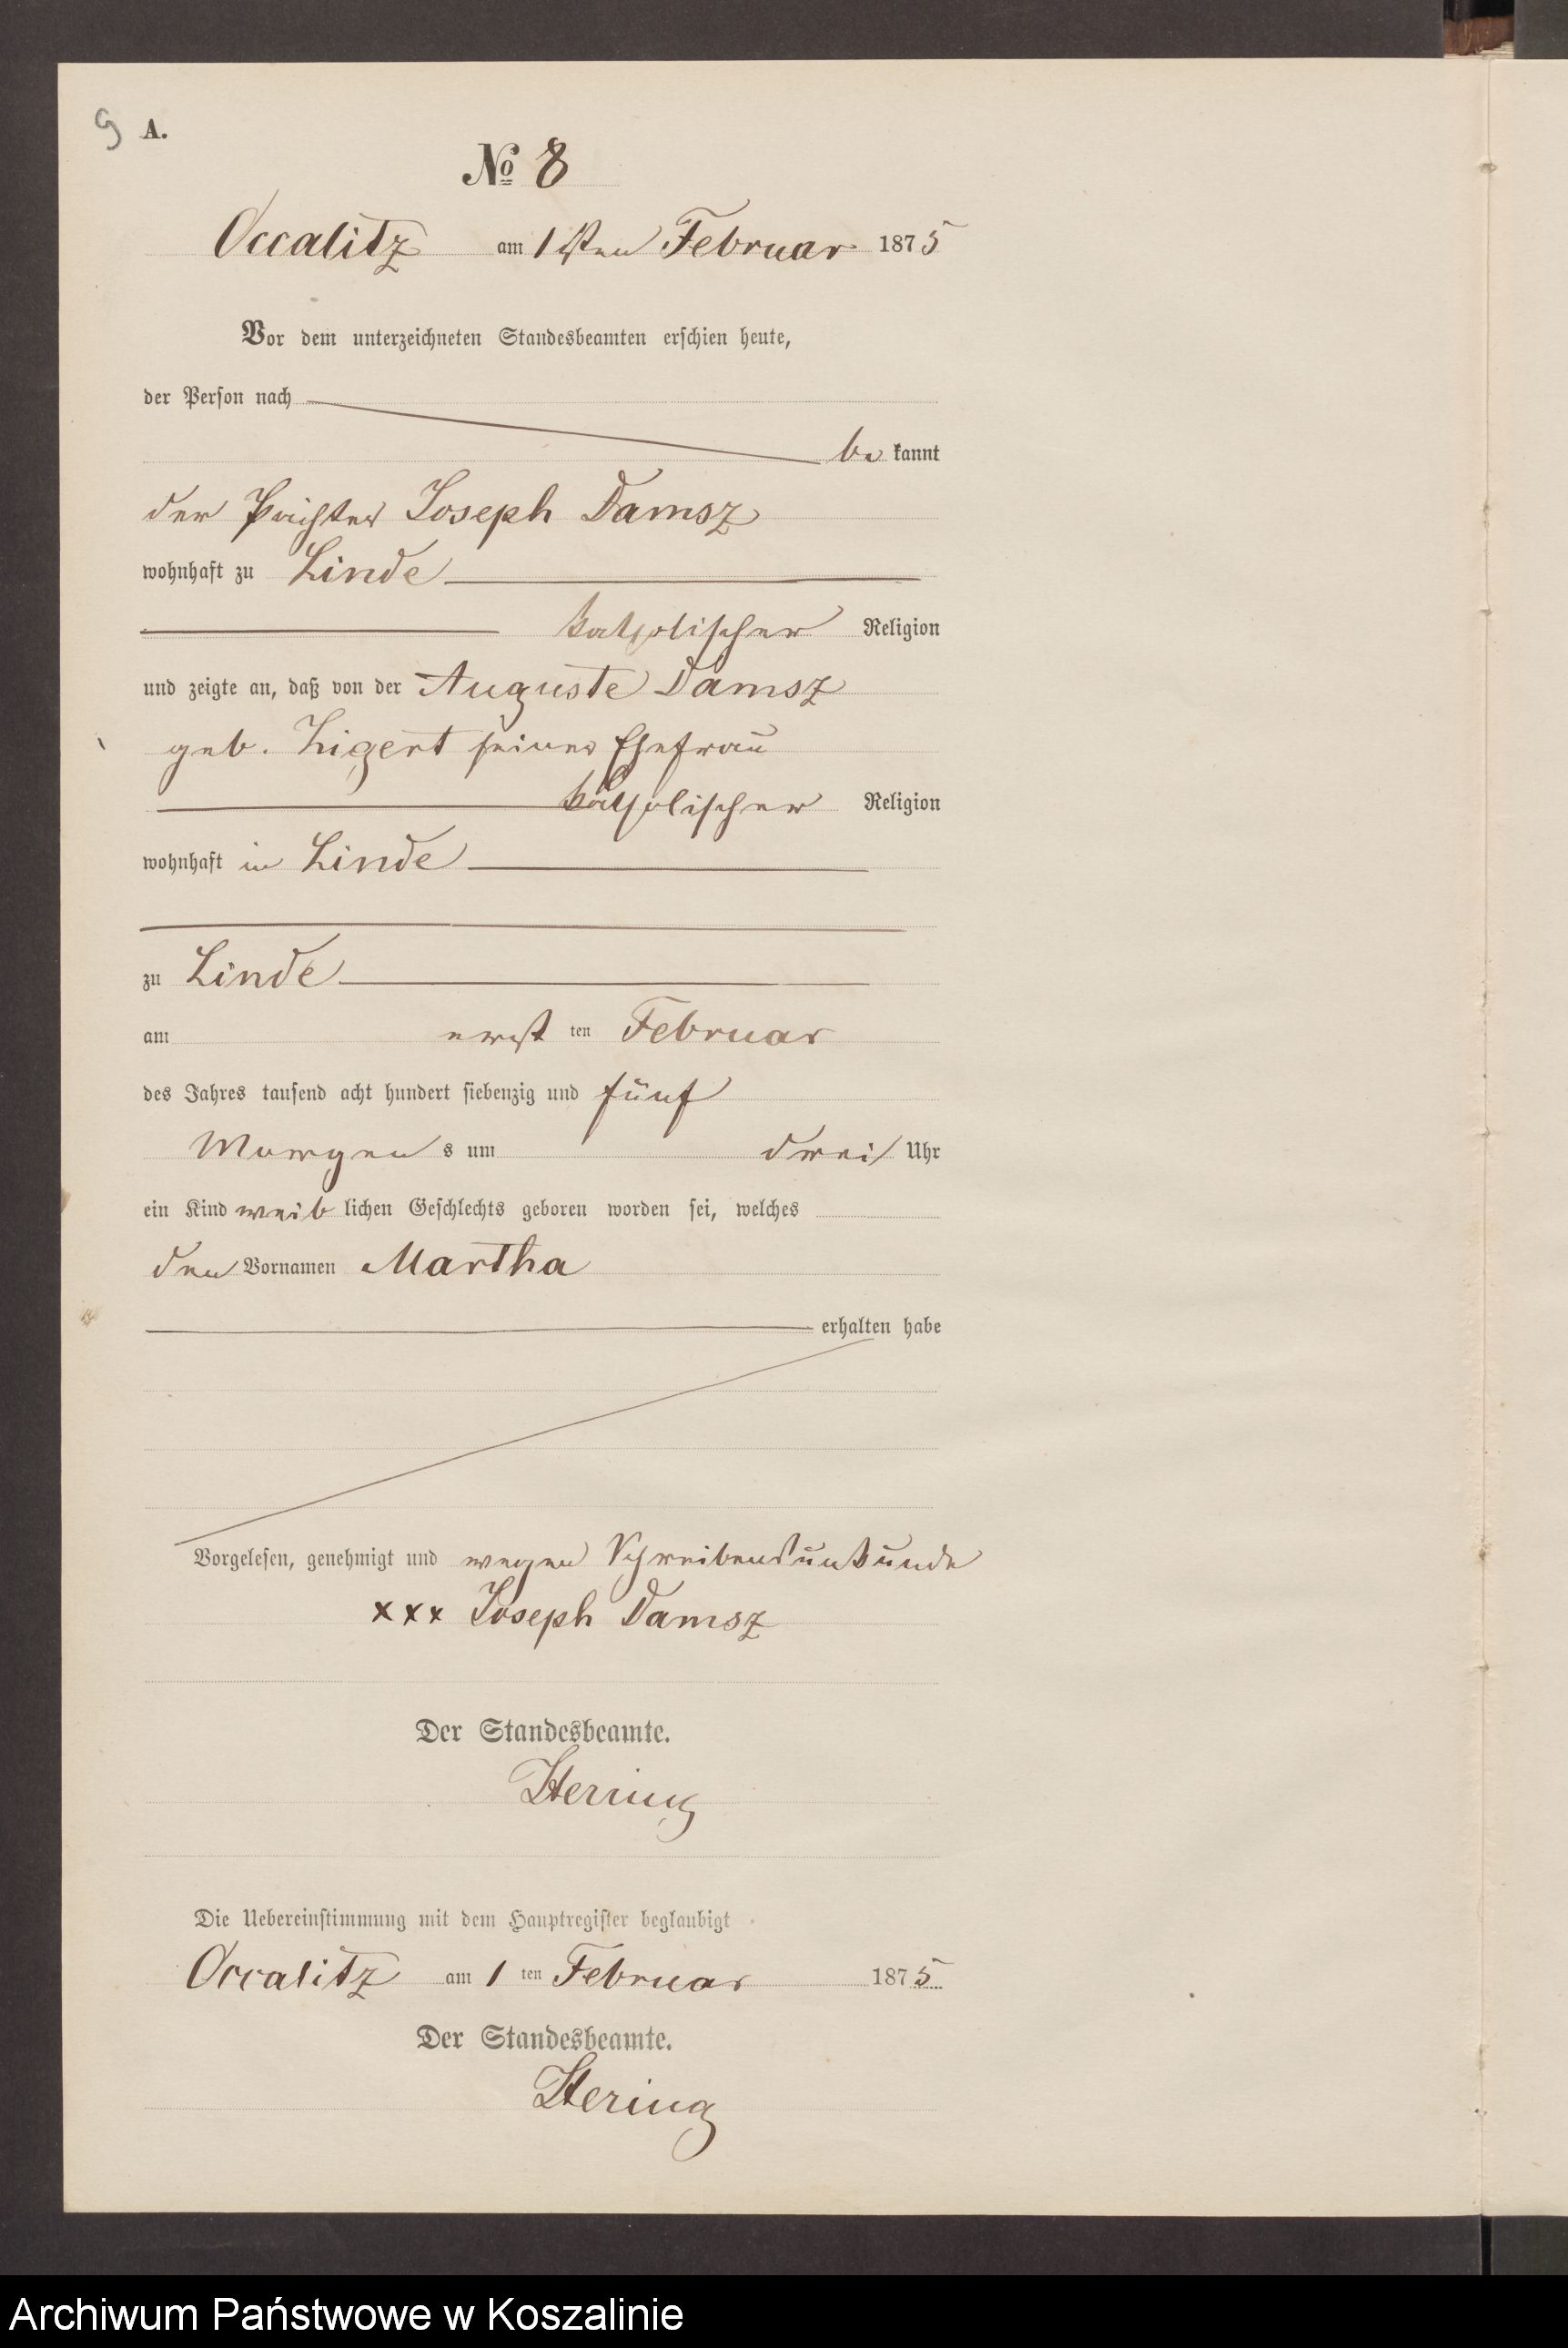 9 A.
№ 8
Occalitz am 1sten Februar 1875
Vor dem unterzeichneten Standesbeamten erschien heute,
der Person nach
be kannt
der Pächter Joseph Damsz
wohnhaft zu Linde
katholischer Religion
und zeigte an, daß von der Auguste Damsz
geb. Ligert seiner Ehefrau
katholischer Religion
wohnhaft in Linde
zu Linde
am erst ten Februar
des Jahres tausend acht hundert siebenzig und fünf
Morgen s um drei Uhr
ein Kind weib lichen Geschlechts geboren worden sei, welches
den Vornamen Martha
erhalten habe
Vorgelesen, genehmigt und wegen Schreibensunkunde
xxx Joseph Damsz
Der Standesbeamte.
Hering
Die Uebereinstimmung mit dem Hauptregister beglaubigt
Occalitz am 1 ten Februar 1875
Der Standesbeamte.
Hering
Archiwum Państwowe w Koszalinie